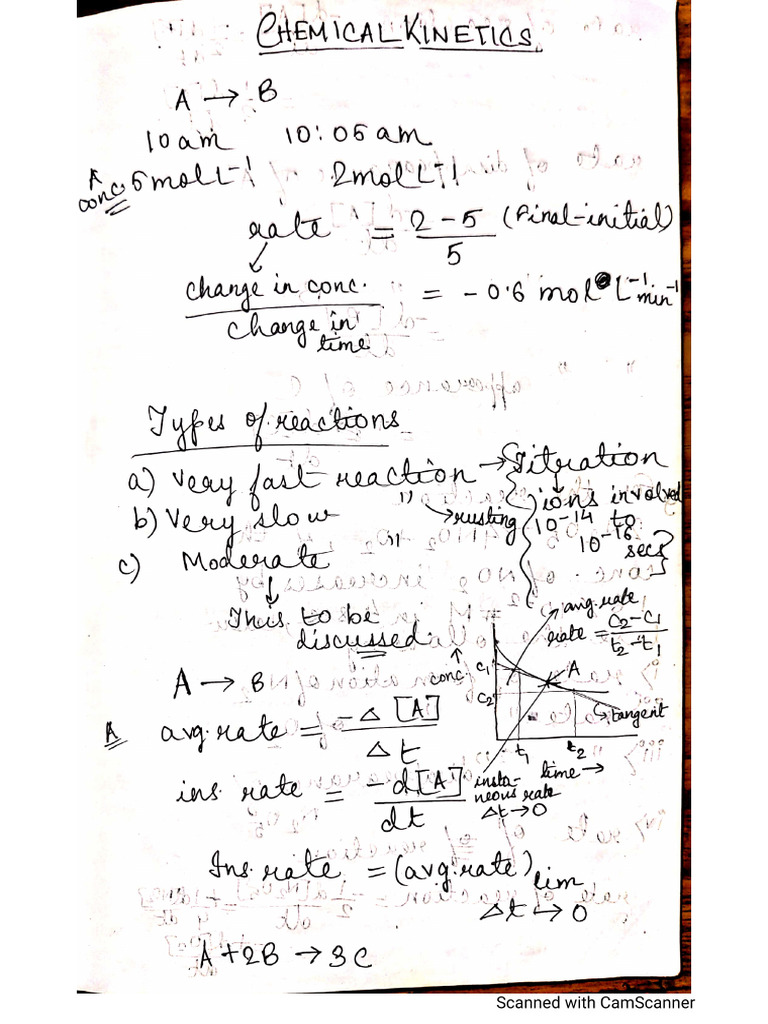 CHEMICAL KINETICS
A → B
10 am 10:05 am
A conc. 5 mol L⁻¹ 2 mol L⁻¹
rate = 2 - 5 / 5 (final-initial)
change in conc. / change in time = - 0.6 mol L⁻¹ min⁻¹
Types of reactions
a) Very fast reaction → Titration
ions involved
10⁻¹⁴ to
10⁻¹⁶ secs
b) Very slow " → rusting
c) Moderate "
This to be
discussed.
A → B
A avg. rate = - Δ [A] / Δt
ins. rate = - d[A] / dt
avg. rate
rate = C₂ - C₁ / t₂ - t₁
conc
C₁
C₂
A
tangent
t₁ t₂
time →
insta-
neous rate
Δt → 0
Ins. rate = (avg. rate) lim
Δt → 0
A + 2B → 3C
Scanned with CamScanner